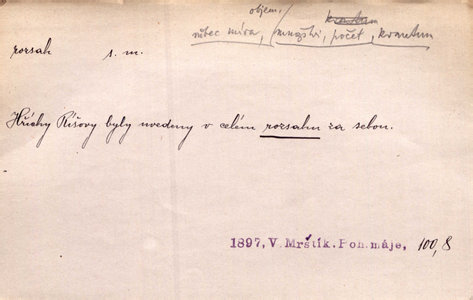 objem/
vůbec míra, množství, počet, kvantum
rozsah s. m.
Hříchy Ríšovy byly uvedeny v celém rozsahu za sebou.
1897, V. Mrštík. Poh. máje, 100,8